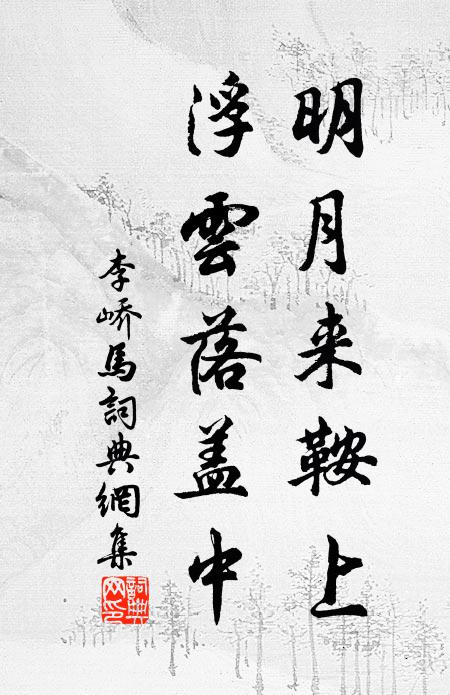 明月来鞍上
浮雲落盖中
李嶠馬詞典網集
詞典網印